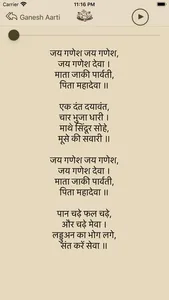 11:16 PM
Ganesh Aarti
जय गणेश जय गणेश,
जय गणेश देवा ।
माता जाकी पार्वती,
पिता महादेवा ॥
एक दंत दयावंत,
चार भुजा धारी ।
माथे सिंदूर सोहे,
मूसे की सवारी ॥
जय गणेश जय गणेश,
जय गणेश देवा ।
माता जाकी पार्वती,
पिता महादेवा ॥
पान चढ़े फल चढ़े,
और चढ़े मेवा ।
लड्डुअन का भोग लगे,
संत करें सेवा ॥